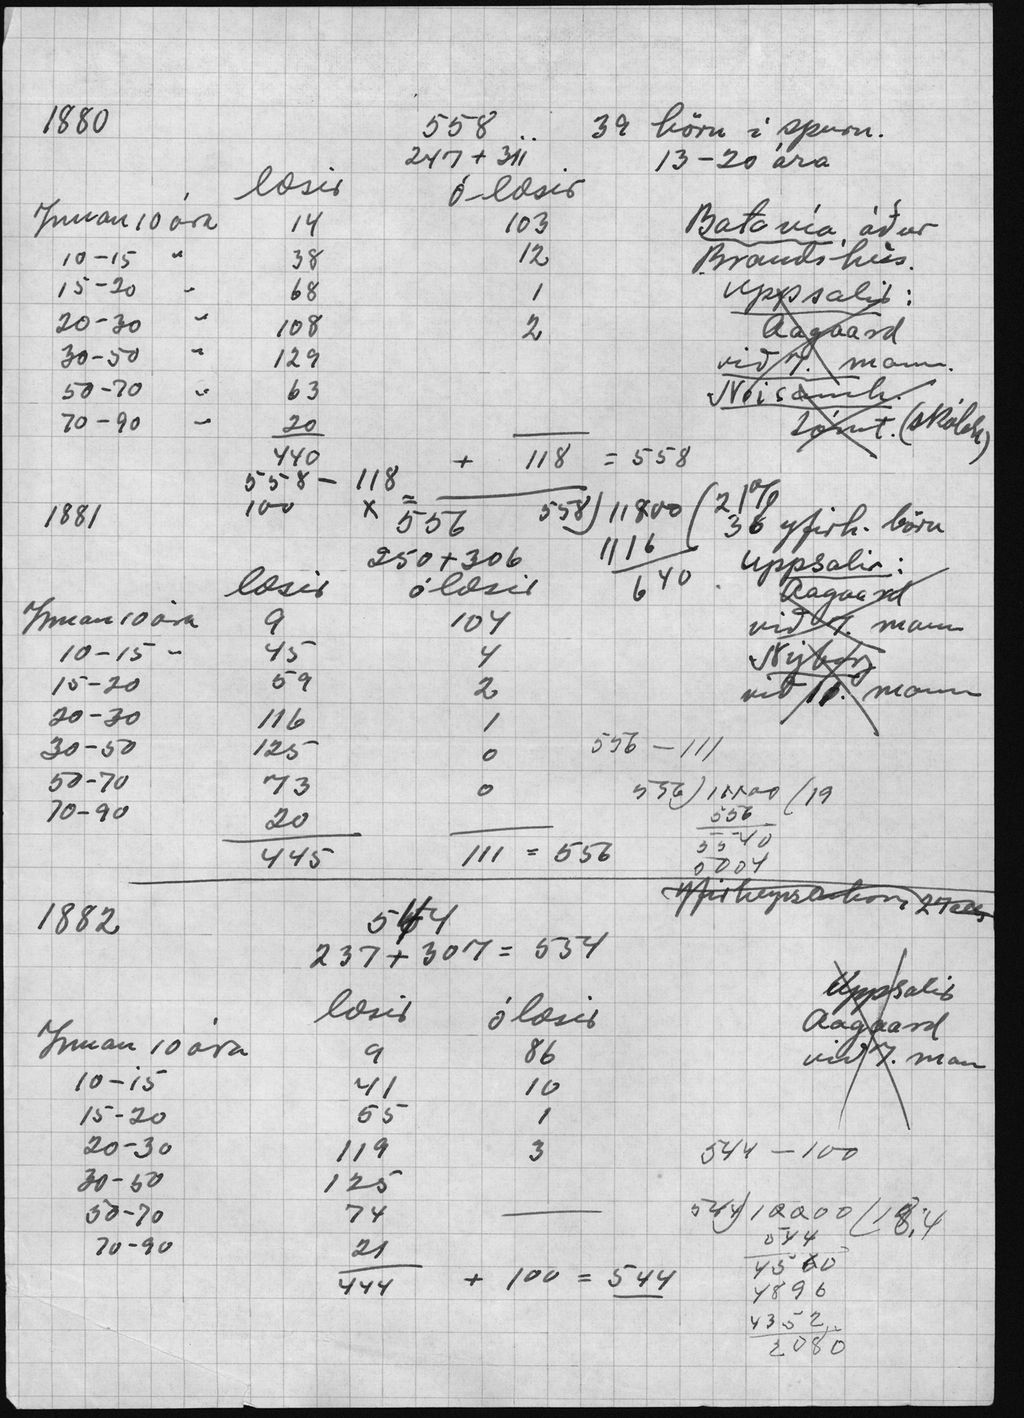 1880 558 39 börn í spurn.
247 + 311 13-20 ára
læsir ó-læsir
Innan 10 ára 14 103 Batavía, áður
10-15 " 38 12 Brandshús.
15-20 " 68 1 Uppsalir:
20-30 " 108 2 Aagaard
30-50 " 129 við 7. mann.
50-70 " 63
70-90 " 20 (skólah)
440 + 118 = 558
558 - 118
100 x = 558) 11800 (21%
1881 556 1116 36 yfirh. börn
250 + 306 640 Uppsalir:
læsir ólæsir Aagaard
Innan 10 ára 9 104 við 7. mann
10-15 " 45 4 Nýborg
15-20 59 2 við 11. mann
20-30 116 1
30-50 125 0 556 - 111
50-70 73 0 556) 11100 (19
70-90 20 556
445 111 = 556 5540
5004
1882 544
237 + 307 = 534
Uppsalir
læsir ólæsir Aagaard
Innan 10 ára 9 86 við 7. man
10-15 41 10
15-20 55 1
20-30 119 3 544 - 100
30-50 125
50-70 74 544) 10000 (18,4
70-90 21 544
444 + 100 = 544 4560
4896
4352
2080